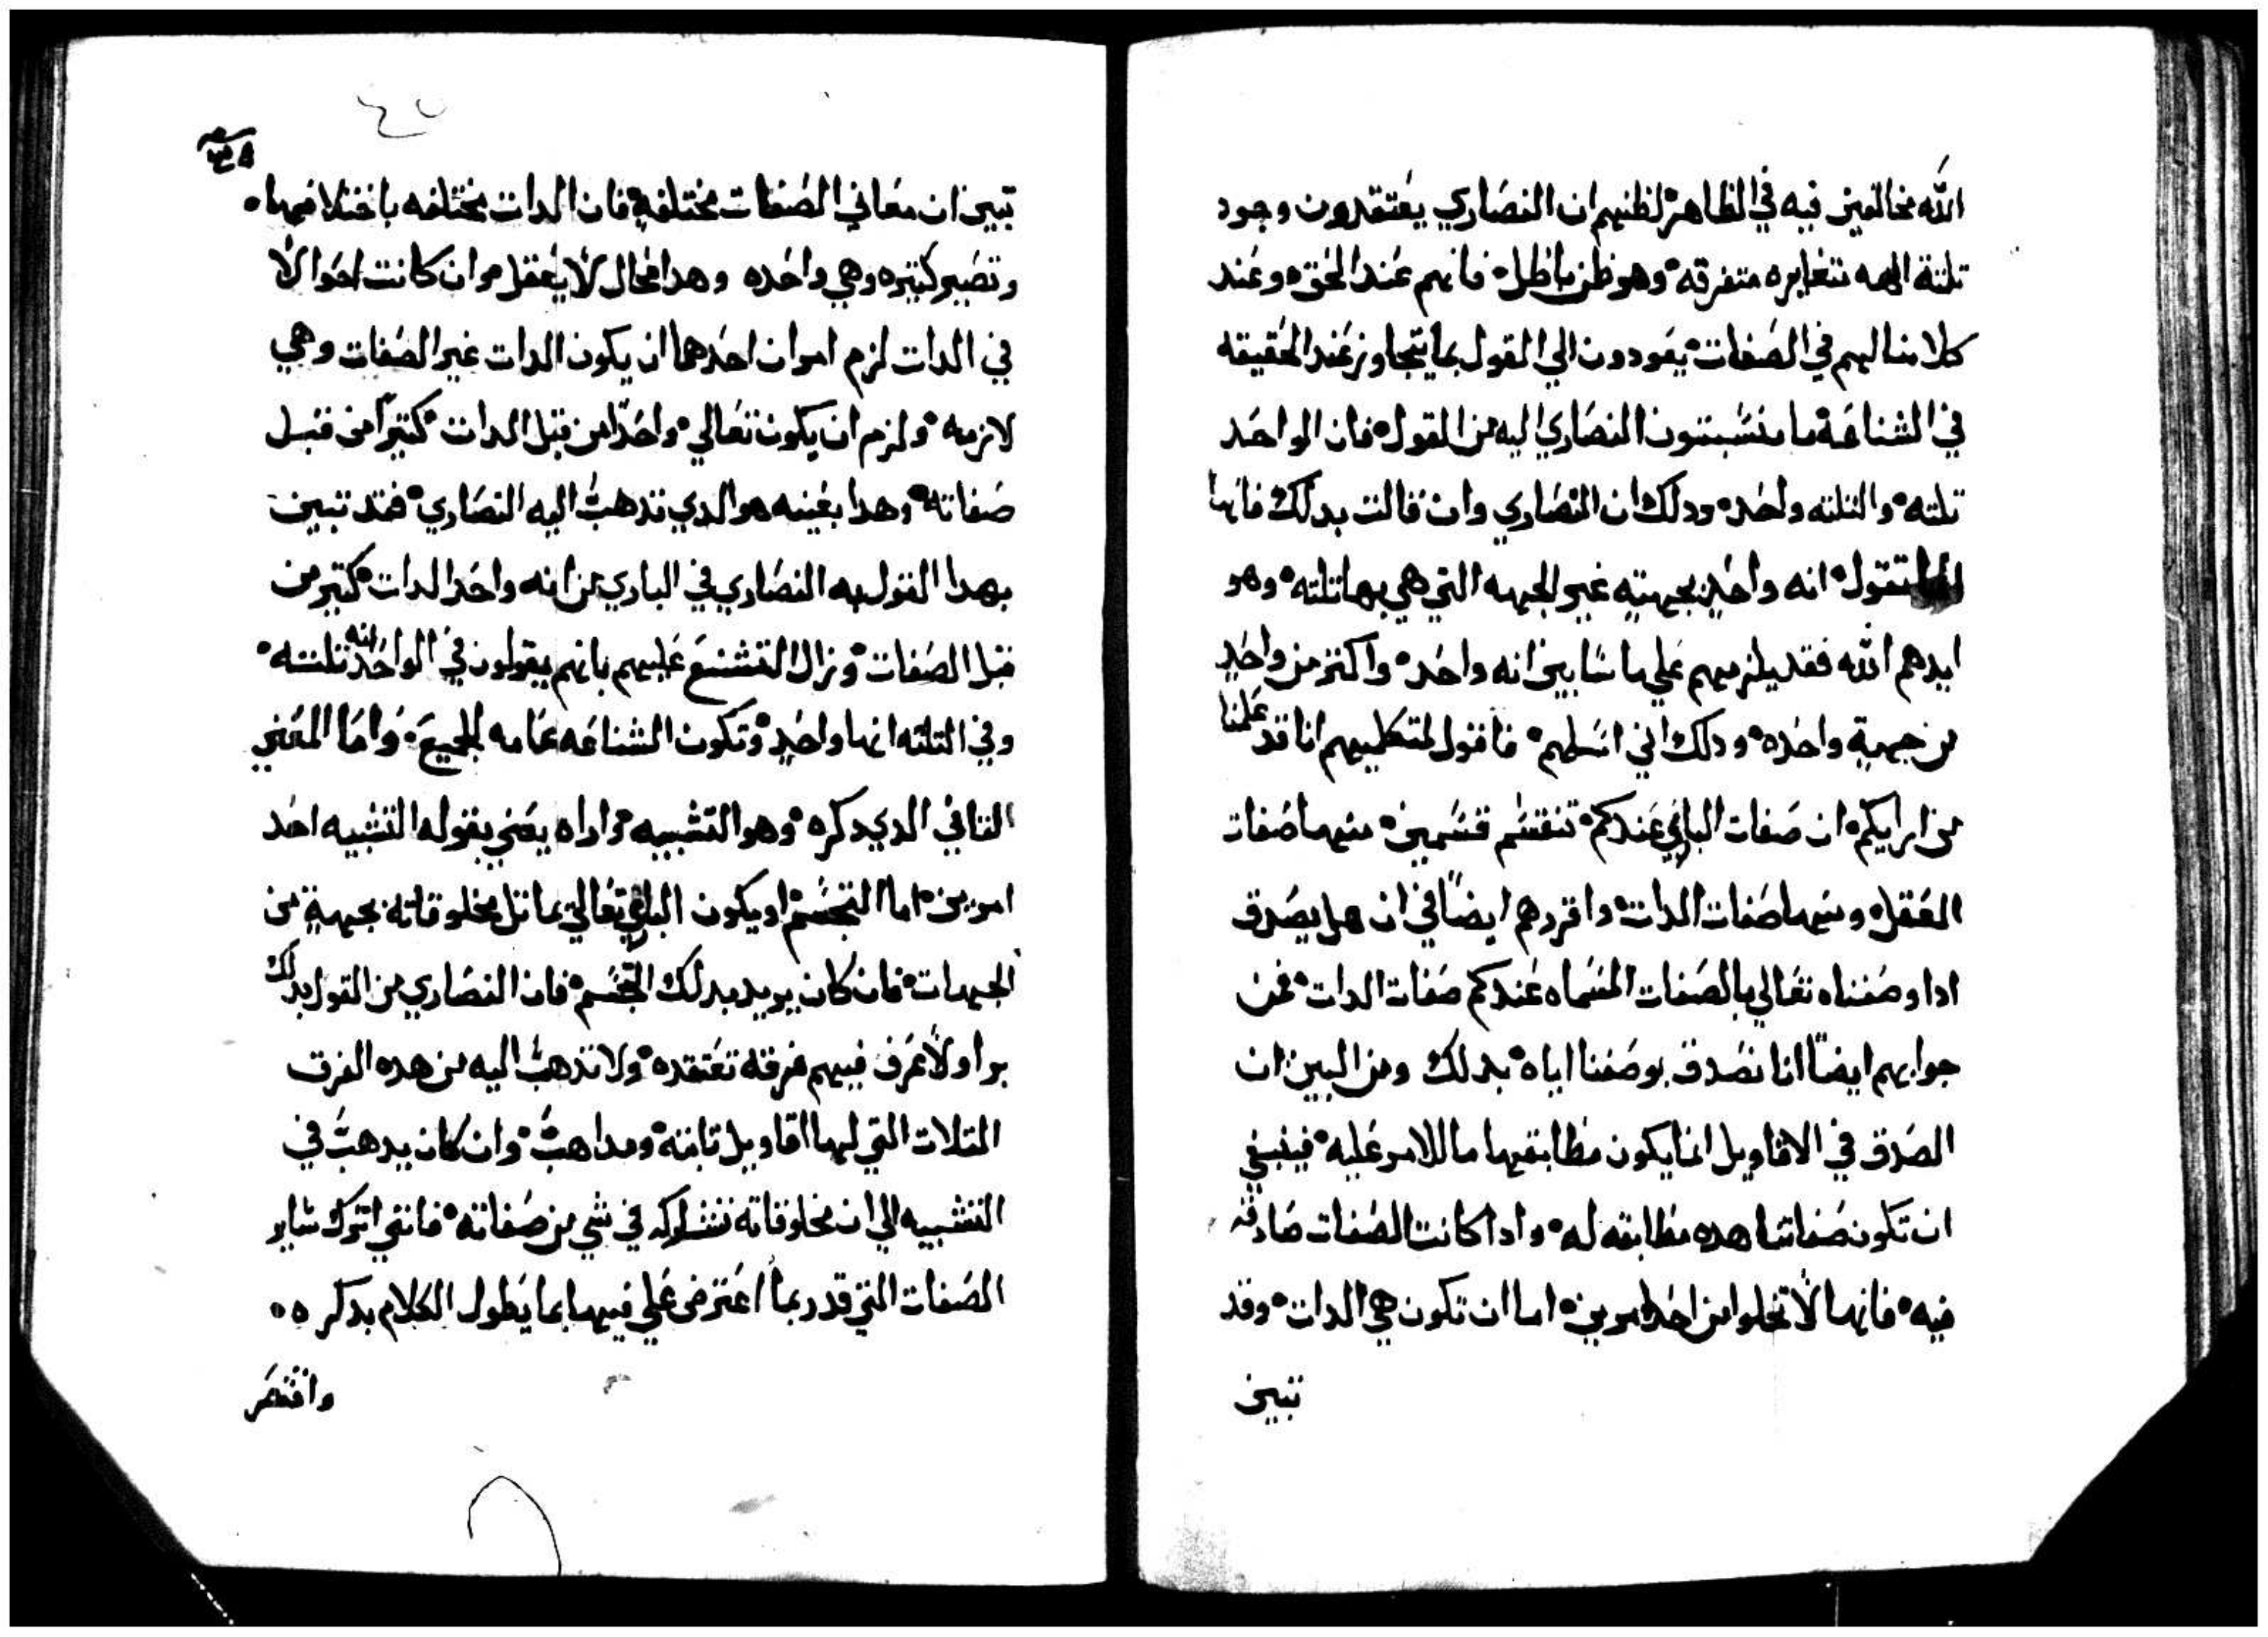 الله مخالفين فيه في الظاهر لظنهم ان النصاري يعتقدون وجود
تلتة الهه متغايره متفرقه وهو ظن باطل فانهم عند الحق وعند
كلامنا لهم في الصفات يعودون الي القول بما يتجاوز عند الحقيقه
في الشناعة ما ينسبون النصاري اليه من القول فان الواحد
تلته والتلته واحد ودلك ان النصاري وان قالت بدلك فانها
تقول انه واحد بجهتٍه غير الجهه التي هي بها تلته وهو
ايدهم الله فقد يلزمهم علي ما سابين انه واحد واكتر من واحدٍ
من جهةٍ واحده ودلك اني اسلهم فاقول لمتكلميهم انا قد علمنا
من ارايكم ان صفات الباري عندكم تنقسم قسمين منها صفات
العقل ومنها صفات الدات واقررهم ايضاً في ان هل يصدق
ادا وصفناه تعالي بالصفات المسماه عندكم صفات الدات فمن
جوابهم ايضاً انا نصدق بوصفنا اياه بدلك ومن البين ان
الصدق في الاقاويل انما يكون مطابقيها ما للامر عليه فينبغي
ان تكون صفاتنا هده مطابقه له وادا كانت الصفات صادقه
فيه فانها لا تخلوا من احد امرين اما ان تكون هي الدات وقد
تبين
تبين ان معاني الصفات مختلفةٍ فان الدات مختلفه باختلافها
وتصير كتيره وهي واحده وهدا محال لا يعقل وان كانت احوالاً
في الدات لزم امران احدهما ان يكون الدات غير الصفات وهي
لازمه ولزم ان يكون تعالي واحداً من قبل الدات كتيراً من قبل
صفاته وهدا بعينه هو الدي تدهب اليه النصاري فقد تبين
بهدا القول به النصاري في الباري من انه واحد الدات كتير من
قبل الصفات وزال التشنيع عليهم بانهم يقولون في الواحد انه تلته
وفي التلته انها واحدٍ وتكون الشناعه عامه للجميع واما المعني
التاني الدي دكره وهو التشبيه فراداه يعني بقوله التشبيه احد
امرين اما التجسم او يكون الباري تعالي يماتل مخلوقاته بجهة من
الجهات فان كان يريد بدلك التجسم فان النصاري من القول بدلك
برا ولا اعرف فيهم فرقه تعتقده ولا تدهب اليه من هده الفرق
التلات التي لها اقاويل تابته ومداهب وان كان يدهب في
التشبيه الي ان مخلوقاته تشاركه في شي من صفاته فانني اترك ساير
الصفات التي قد ربما اعترض علي فيها بما يطول الكلام بدكره
واقتصر